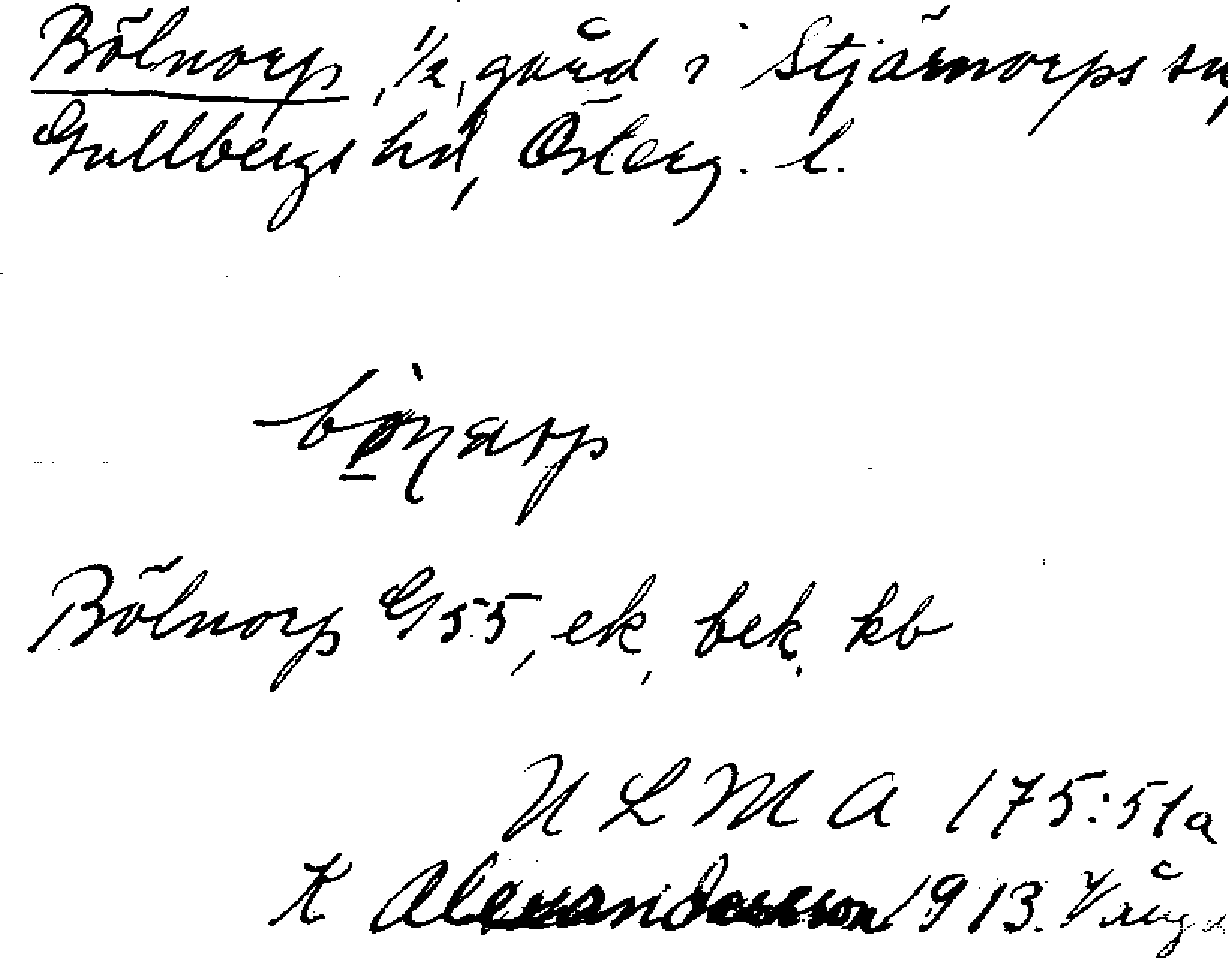 Bölnorp, 1/2, gård i Stjärnorps sn,
Gullbergs hd, Österg. l.
Bölnorp G55, ek, bek, kb
ULMA 175:51a
K Alexanderson 1913.